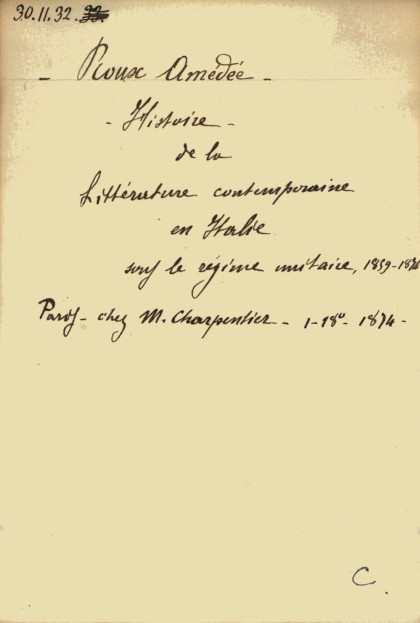 30.11.32.
- Roux Amédée -
- Histoire -
de la
Littérature contemporaine
en Italie
sous le régime unitaire, 1859-1874
Paris - chez M. Charpentier - 1-18º - 1874 -
C.